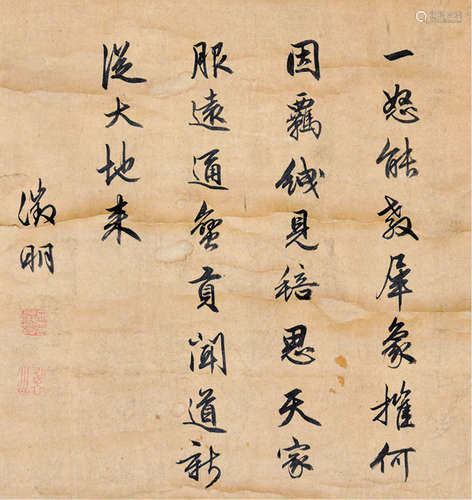 一怒能教犀象摧何
因羈見思天家
服遠通蠻貢聞道新
從大地来
徵明